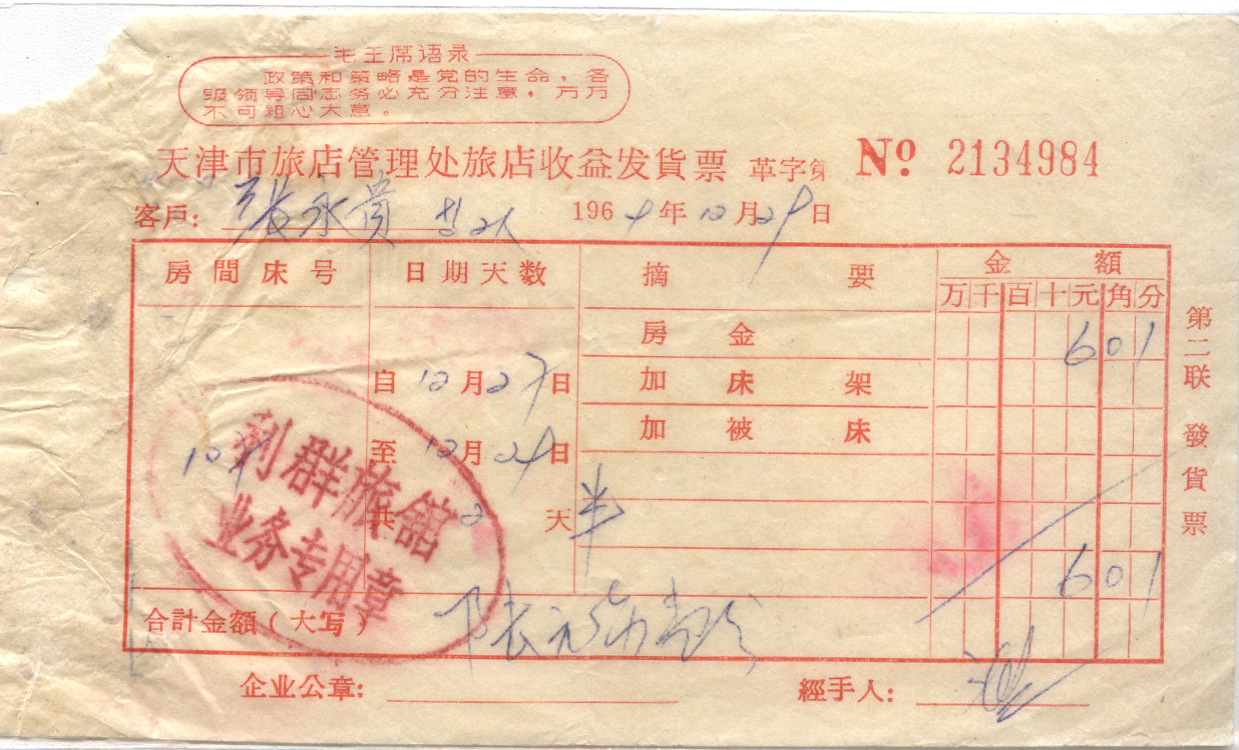 毛主席语录
政策和策略是党的生命,各
级领导同志务必充分注意,万万
不可粗心大意。
天津市旅店管理处旅店收益发貨票 革字第 No. 2134984
客戶: 張永貴 1969年12月29日
房間床号 日期天数 摘要 金額
万千百十元角分
房金 601
自12月27日 加床架
至12月29日 加被床
共2天半
601
合計金額(大写)
利群旅館
业务专用章
企业公章: 經手人:
第二联 發貨票